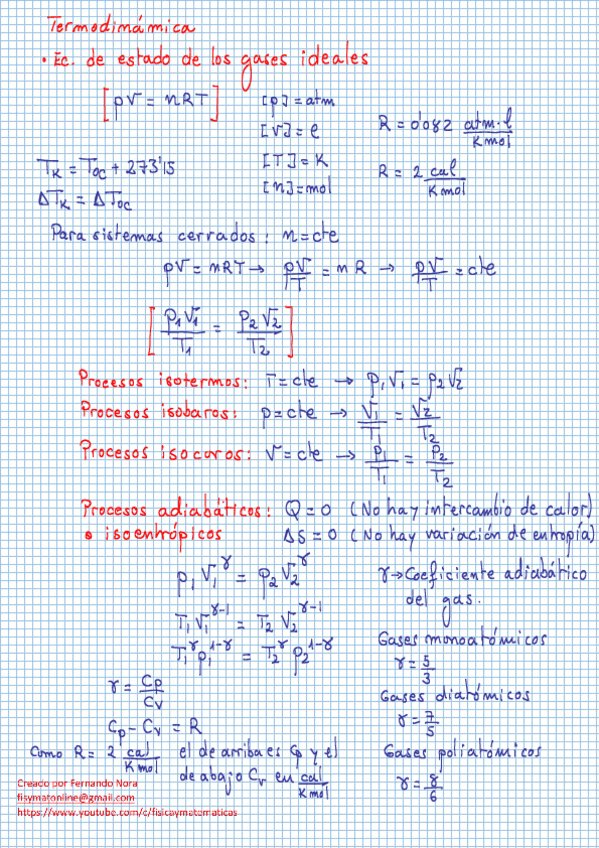 Termodinámica
• Ec. de estado de los gases ideales
[pV = nRT]
[p] = atm
[V] = l
[T] = K
[n] = mol
R = 0'082 atm·l / K mol
R = 2 cal / K mol
T_K = T_ºC + 273'15
ΔT_K = ΔT_ºC
Para sistemas cerrados: n = cte
pV = nRT → pV/T = nR → pV/T = cte
[p₁V₁/T₁ = p₂V₂/T₂]
Procesos isotermos: T = cte → p₁V₁ = p₂V₂
Procesos isobaros: p = cte → V₁/T₁ = V₂/T₂
Procesos isocoros: V = cte → p₁/T₁ = p₂/T₂
Procesos adiabáticos: Q = 0 (No hay intercambio de calor)
o isoentrópicos ΔS = 0 (No hay variación de entropía)
p₁V₁^γ = p₂V₂^γ
T₁V₁^(γ-1) = T₂V₂^(γ-1)
T₁^γ p₁^(1-γ) = T₂^γ p₂^(1-γ)
γ → Coeficiente adiabático
del gas.
Gases monoatómicos
γ = 5/3
Gases diatómicos
γ = 7/5
Gases poliatómicos
γ = 8/6
γ = Cp/Cv
Cp - Cv = R
Como R = 2 cal / K mol el de arriba es Cp y el
de abajo Cv en cal / K mol
Creado por Fernando Nora
fisymatonline@gmail.com
https://www.youtube.com/c/fisicaymatematicas